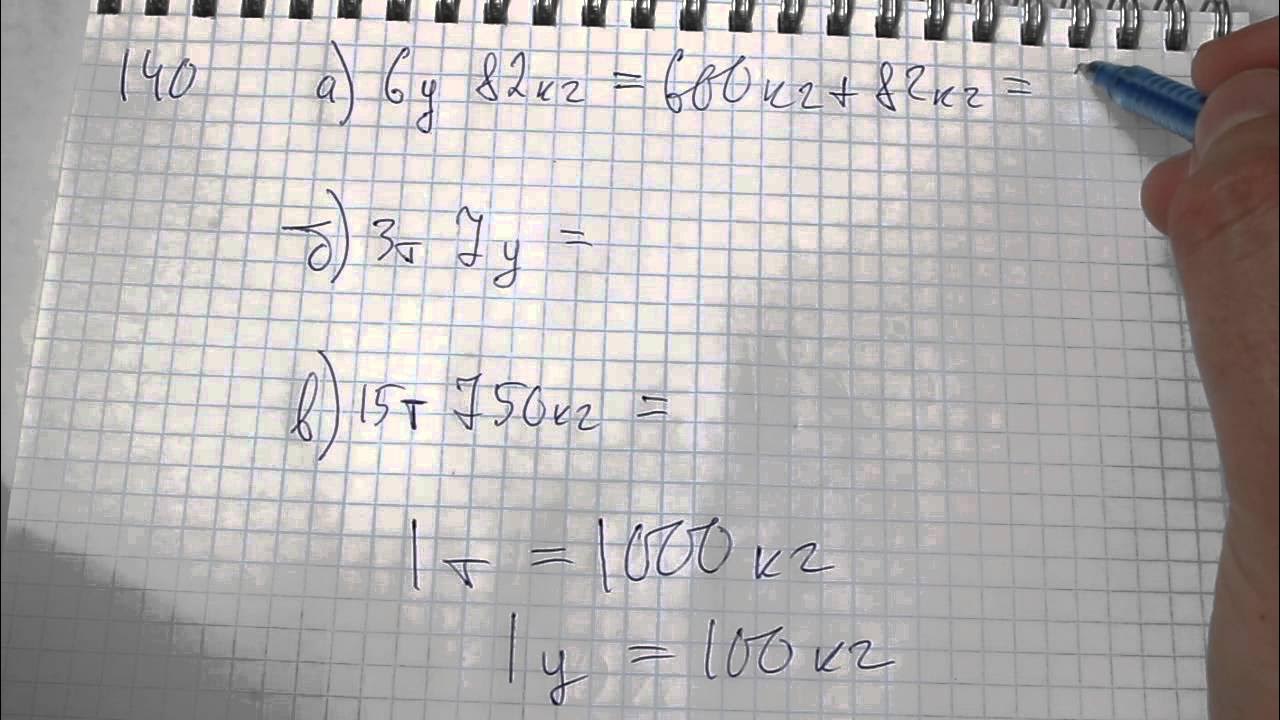 140 а) 6ц 82кг = 600кг + 82кг =
б) 3т 7ц =
в) 15т 750кг =
1т = 1000кг
1ц = 100кг